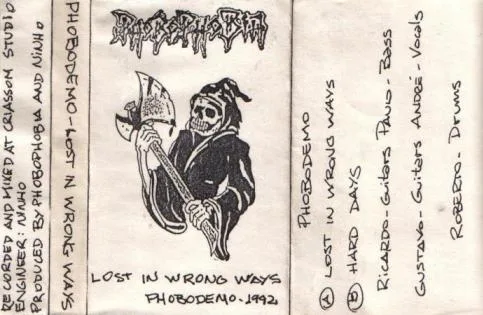 RECORDED AND MIXED AT CRIASSON STUDIO
ENGINEER: NINHO
PRODUCED BY PHOBOPHOBIA AND NINHO
PHOBODEMO-LOST IN WRONG WAYS
PHOBOPHOBIA
LOST IN WRONG WAYS
PHOBODEMO-1992
PHOBODEMO
A LOST IN WRONG WAYS
B HARD DAYS
RICARDO-Guitars PAULO-Bass
GUSTAVO-Guitars ANDRÉ-Vocals
ROBERTO-Drums